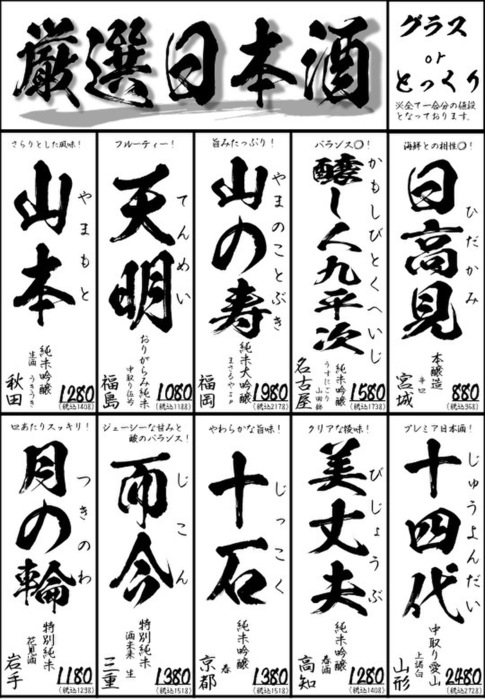 厳選日本酒
グラス
or
とっくり
※全て一合分の値段
となっております。
海鮮との相性〇!
日高見
ひだかみ
本醸造
辛口
宮城
880
(税込968)
バランス〇!
醸し人九平次
かもしびとくへいじ
純米吟醸
うすにごり
山田錦
名古屋
1580
(税込1738)
旨みたっぷり!
山の寿
やまのことぶき
純米大吟醸
福岡
1980
(税込2178)
フルーティー!
天明
てんめい
おりがらみ純米
中取り伍号
福島
1080
(税込1188)
さらりとした風味!
山本
やまもと
純米吟醸
生酒 うきうき
秋田
1280
(税込1408)
プレミア日本酒!
十四代
じゅうよんだい
中取り愛山
上諸白
山形
2480
(税込2728)
クリアな後味!
美丈夫
びじょうぶ
純米吟醸
春酒
高知
1280
(税込1408)
やわらかな旨味!
十石
じっこく
純米吟醸
春
京都
1380
(税込1518)
ジューシーな甘みと
酸のバランス!
而今
じこん
特別純米
酒未来 生
三重
1380
(税込1518)
口あたりスッキリ!
月の輪
つきのわ
特別純米
花見酒
岩手
1180
(税込1298)